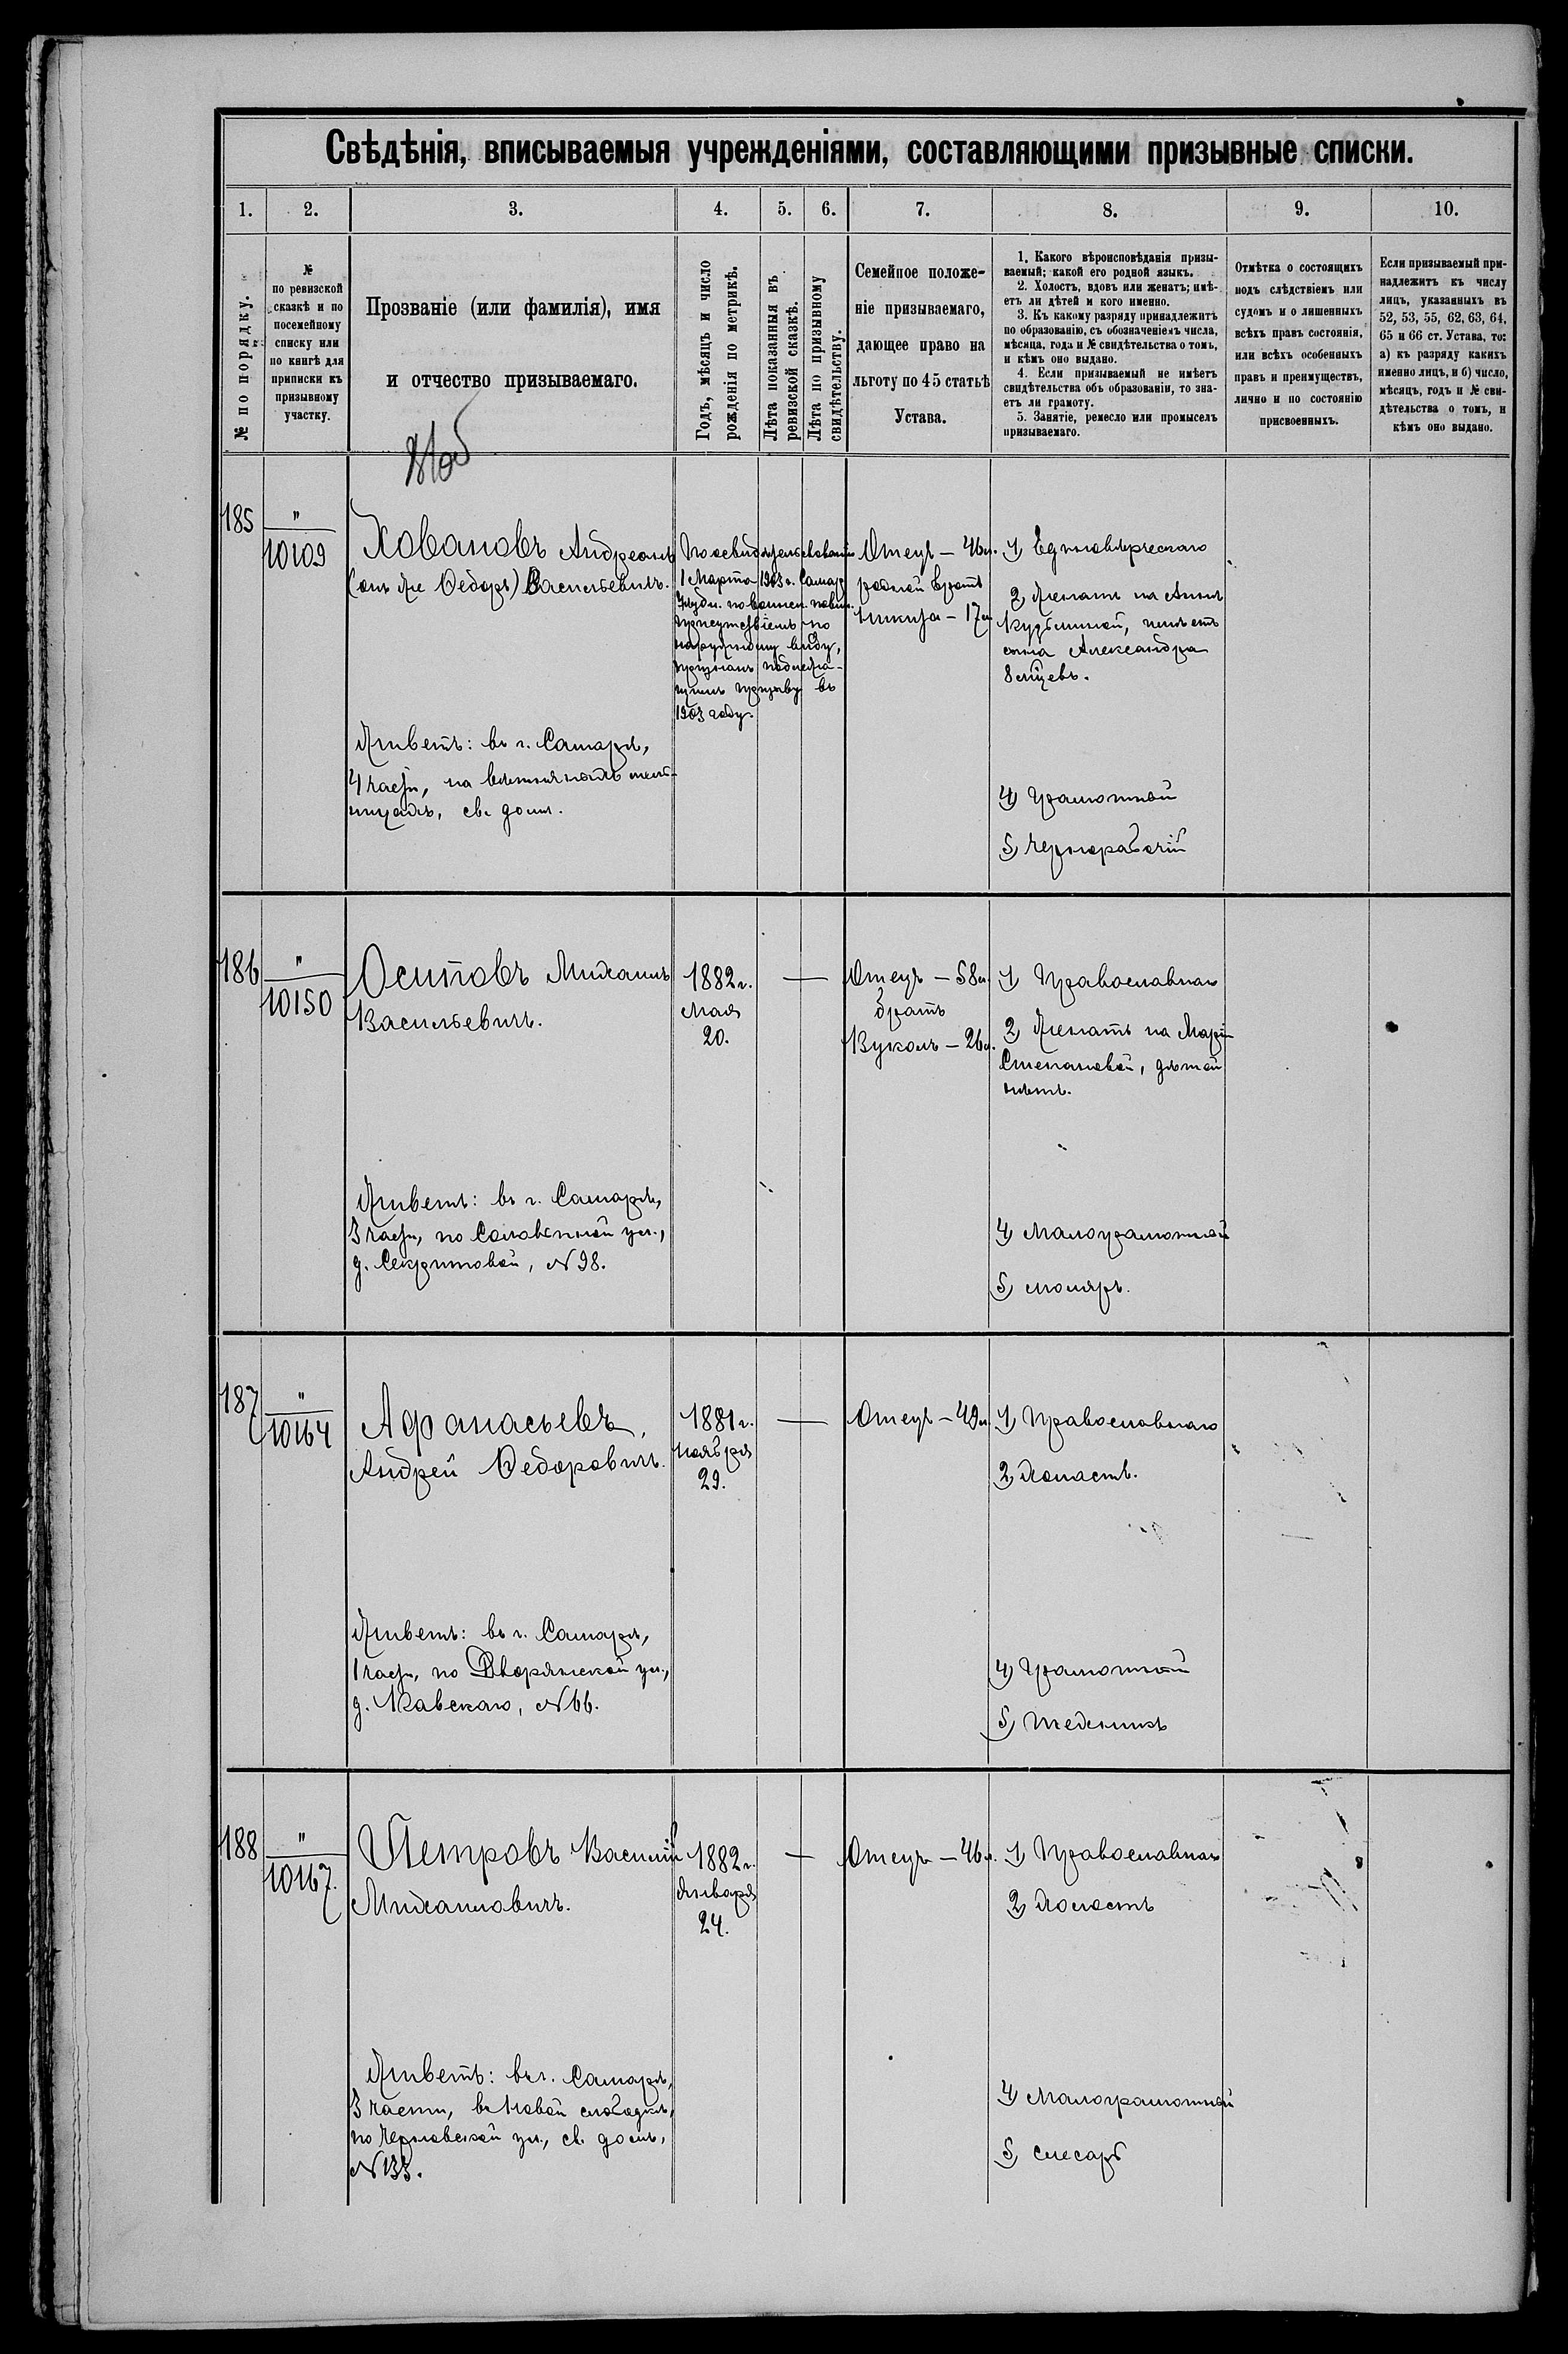 Свѣдѣнія, вписываемыя учрежденіями, составляющими призывные списки.
1. 2. 3. 4. 5. 6. 7. 8. 9. 10.
№ по порядку.
№
по ревизской
сказкѣ и по
посемейному
списку или
по книгѣ для
приписки къ
призывному
участку.
Прозваніе (или фамилія), имя
и отчество призываемаго.
Годъ, мѣсяцъ и число
рожденія по метрикѣ.
Лѣта показанныя въ
ревизской сказкѣ.
Лѣта по призывному
свидѣтельству.
Семейное положе-
ніе призываемаго,
дающее право на
льготу по 45 статьѣ
Устава.
1. Какого вѣроисповѣданія призы-
ваемый; какой его родной языкъ.
2. Холостъ, вдовъ или женатъ; имѣ-
етъ ли дѣтей и кого именно.
3. Къ какому разряду принадлежитъ
по образованію, съ обозначеніемъ числа,
мѣсяца, года и № свидѣтельства о томъ,
и кѣмъ оно выдано.
4. Если призываемый не имѣетъ
свидѣтельства объ образованіи, то зна-
етъ ли грамоту.
5. Занятіе, ремесло или промыселъ
призываемаго.
Отмѣтка о состоящихъ
подъ слѣдствіемъ или
судомъ и о лишенныхъ
всѣхъ правъ состоянія,
или всѣхъ особенныхъ
правъ и преимуществъ,
лично и по состоянію
присвоенныхъ.
Если призываемый при-
надлежитъ къ числу
лицъ, указанныхъ въ
52, 53, 55, 62, 63, 64,
65 и 66 ст. Устава, то:
а) къ разряду какихъ
именно лицъ, и б) число,
мѣсяцъ, годъ и № сви-
дѣтельства о томъ, и
кѣмъ оно выдано.
185
"
10109
Ховановъ Андреанъ
(онъ же Ѳедоръ) Васильевичъ.
Живетъ: въ г. Самарѣ,
4 части,
св. домъ.
По освидѣтельствованію
1 Марта 1903 г. Самар.
Уѣздн. по воинск. повин.
присутствіемъ по
наружному виду,
признанъ подлежа-
щимъ призыву въ
1903 году.
Отецъ – 46 л.
родной братъ
Никита – 17 л.
1) Единовѣрческаго
2) Женатъ на Аннѣ
Кузьминой, имѣетъ
сына Александра
8 мѣсяцевъ.
4) Грамотный
5) Чернорабочій
186
"
10150
Осиповъ Михаилъ
Васильевичъ.
Живетъ: въ г. Самарѣ,
3 части, по Соловьиной ул.,
д. , № 98.
1882 г.
Мая
20.
—
Отецъ – 58 л.
братъ
Вуколъ – 26 л.
1) Православнаго
2) Женатъ на Маріи
Степановой, дѣтей
нѣтъ.
4) Малограмотный
5) Моляръ.
187
"
10164
Афанасьевъ,
Андрей Ѳедоровичъ.
Живетъ: въ г. Самарѣ,
1 части, по Дворянской ул.,
д. , № 66.
1881 г.
Ноября
29.
—
Отецъ – 49 л.
1) Православнаго
2) Холостъ.
4) Грамотный
5) Техникъ
188
"
10167.
Петровъ Василій
Михаиловичъ.
Живетъ: въ г. Самарѣ,
3 части, въ Новой слободкѣ,
по ул., св. домъ,
№ 133.
1882 г.
Января
24.
—
Отецъ – 46 л.
1) Православнаго
2) Холостъ
4) Малограмотный
5) Слесарь